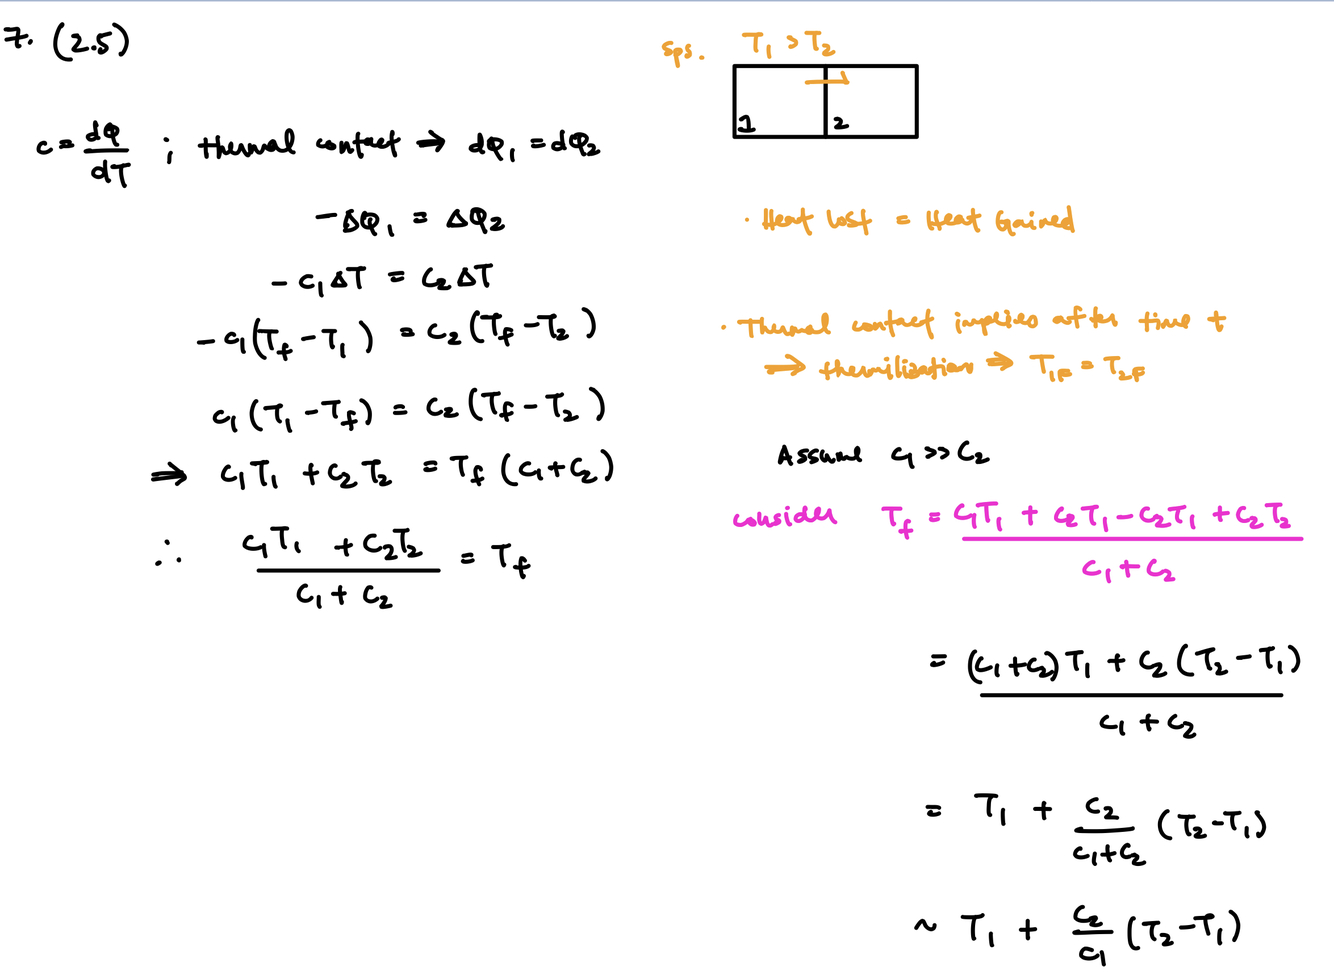 7. (2.5)
c = dQ/dT ; thermal contact → dQ₁ = dQ₂
-ΔQ₁ = ΔQ₂
-c₁ΔT = c₂ΔT
-c₁(T_f - T₁) = c₂(T_f - T₂)
c₁(T₁ - T_f) = c₂(T_f - T₂)
⇒ c₁T₁ + c₂T₂ = T_f(c₁+c₂)
∴ (c₁T₁ + c₂T₂)/(c₁ + c₂) = T_f
Sps. T₁ > T₂
1 2
· Heat lost = Heat Gained
· Thermal contact implies after time t
⇒ thermilization ⇒ T₁F = T₂F
Assume c₁ >> c₂
consider T_f = (c₁T₁ + c₂T₁ - c₂T₁ + c₂T₂)/(c₁ + c₂)
= ((c₁+c₂)T₁ + c₂(T₂ - T₁))/(c₁ + c₂)
= T₁ + c₂/(c₁+c₂) (T₂-T₁)
~ T₁ + c₂/c₁ (T₂-T₁)